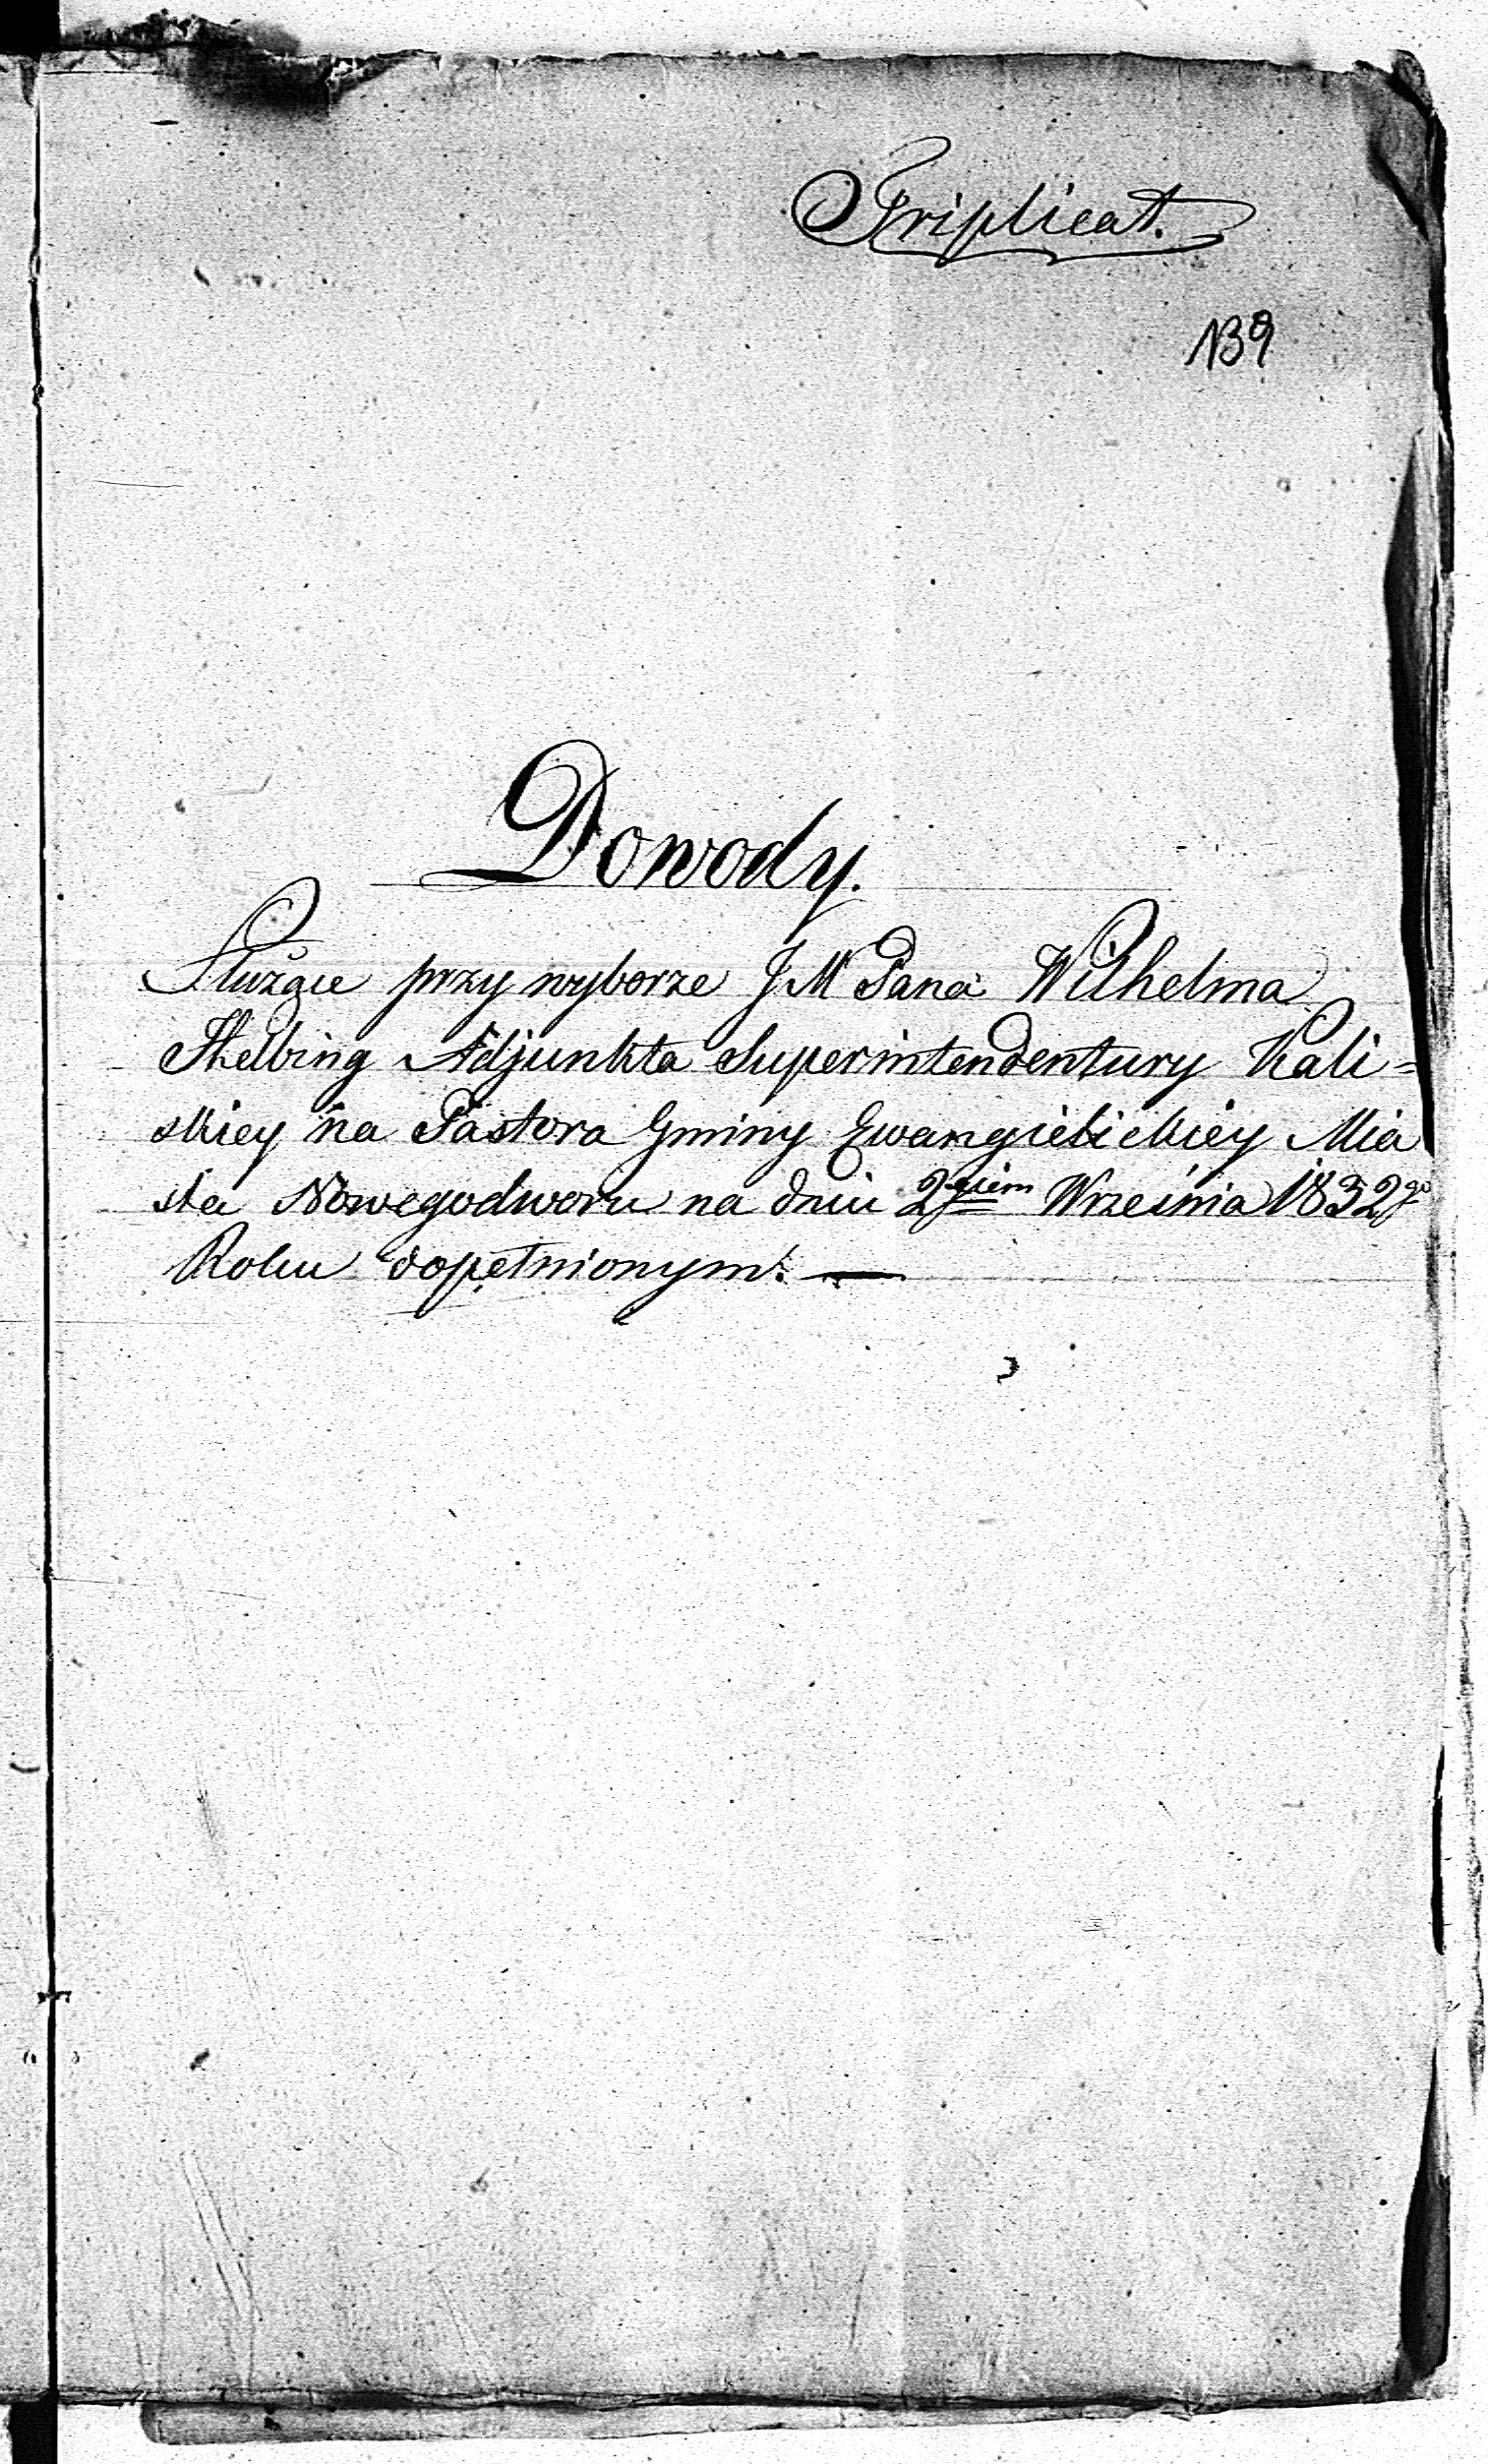 Triplicat.
139
Dowody.
Służące przy wyborze J M Pana Wilhelma
Helbing Adjunkta Superintendentury Kali=
skiey na Pastora Gminy Ewangielickiey Mia
sta Nowegodworu na dniu 2giem Września 1832go
Roku dopełnionym. —